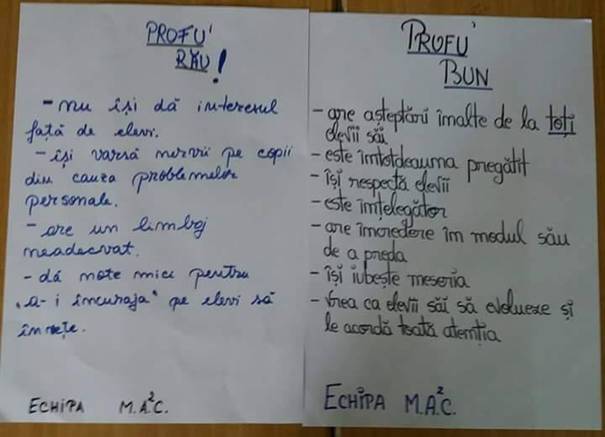 PROFU'
RĂU!
- nu își dă interesul
față de elevi.
- își varsă nervii pe copii
din cauza problemelor
personale.
- are un limbaj
neadecvat.
- dă note mici pentru
„a-i încuraja" pe elevi să
învețe.
ECHIPA M.A².C.
PROFU'
BUN
- are așteptări înalte de la toți
elevii săi
- este întotdeauna pregătit
- își respectă elevii
- este înțelegător
- are încredere în modul său
de a preda
- își iubește meseria
- vrea ca elevii săi să evolueze și
le acordă toată atenția
ECHIPA M.A².C.